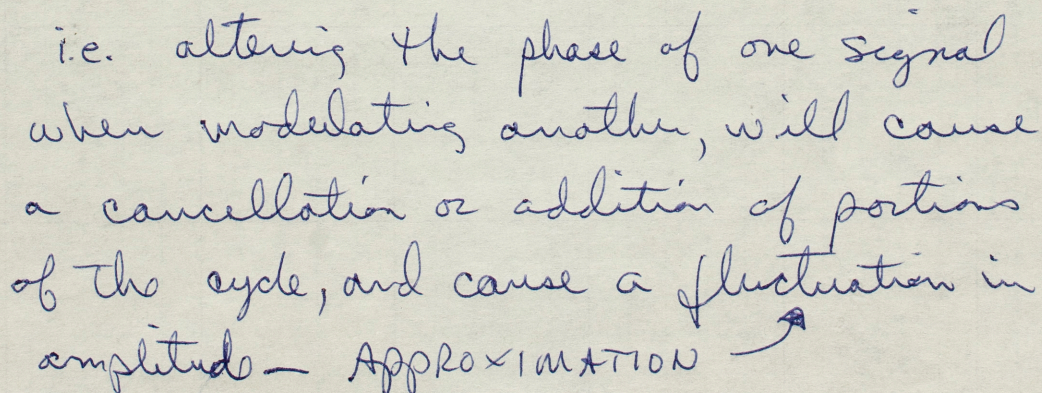 i.e. altering the phase of one signal
when modulating another, will cause
a cancellation or addition of portions
of the cycle, and cause a fluctuation in
amplitude — APPROXIMATION